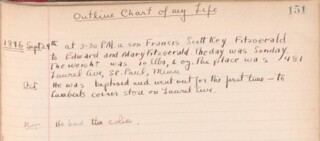 Outline Chart of my Life 151
1896 Sept 24th at 3.30 P.M. a son Francis Scott Key Fitzgerald
to Edward and Mary Fitzgerald. The day was Sunday
The weight was 10 lbs, 6 oz. The place was 481
Laurel Ave, St. Paul, Minn
Oct He was baptised and went out for the first time — to
Lambert's corner store on Laurel Ave.
Nov He had the colic.